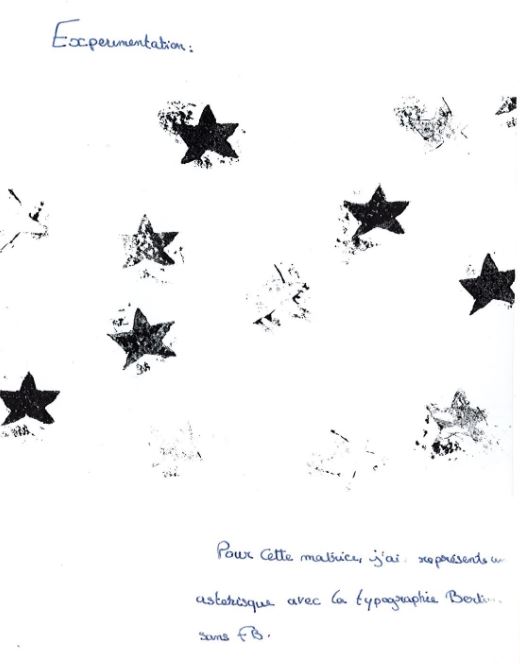 Experimentation:
Pour cette matrice, j'ai représenté un
asterisque avec la typographie Berlin
sans FB.